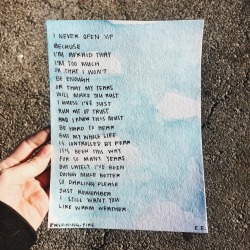 I NEVER OPEN UP
BECAUSE
I'M AFRAID THAT
I'M TOO MUCH
OR THAT I WON'T
BE ENOUGH
OR THAT MY FEARS
WILL MAKE YOU RUST
I GUESS I'VE JUST
RUN OUT OF TRUST
AND I KNOW THIS MUST
BE HARD TO HEAR
BUT MY WHOLE LIFE
IS CONTROLLED BY FEAR
IT'S BEEN THIS WAY
FOR SO MANY YEARS
BUT LATELY I'VE BEEN
DOING MUCH BETTER
SO DARLING PLEASE
JUST REMEMBER
I STILL WANT YOU
LIKE WARM WEATHER
E.E.